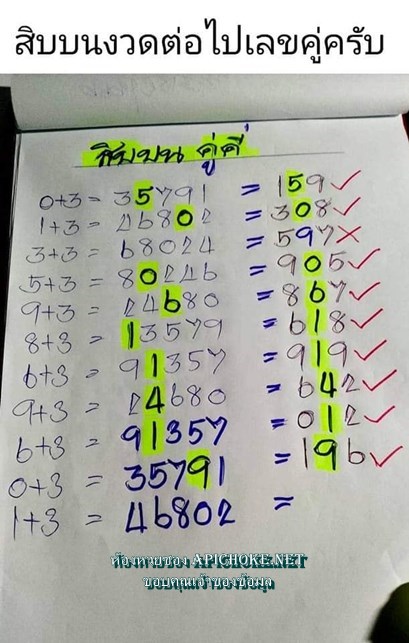 สิบบนงวดต่อไปเลขคู่ครับ
สิบบน คู่คี่
0+3 = 35791 = 159 ✓
1+3 = 46802 = 308 ✓
3+3 = 68024 = 597 ✗
5+3 = 80246 = 905 ✓
9+3 = 24680 = 867 ✓
8+3 = 13579 = 618 ✓
6+3 = 91357 = 919 ✓
9+3 = 24680 = 642 ✓
6+3 = 91357 = 012 ✓
0+3 = 35791 = 196 ✓
1+3 = 46802 =
ห้องหวยซอง APICHOKE.NET
ขอบคุณเจ้าของข้อมูล